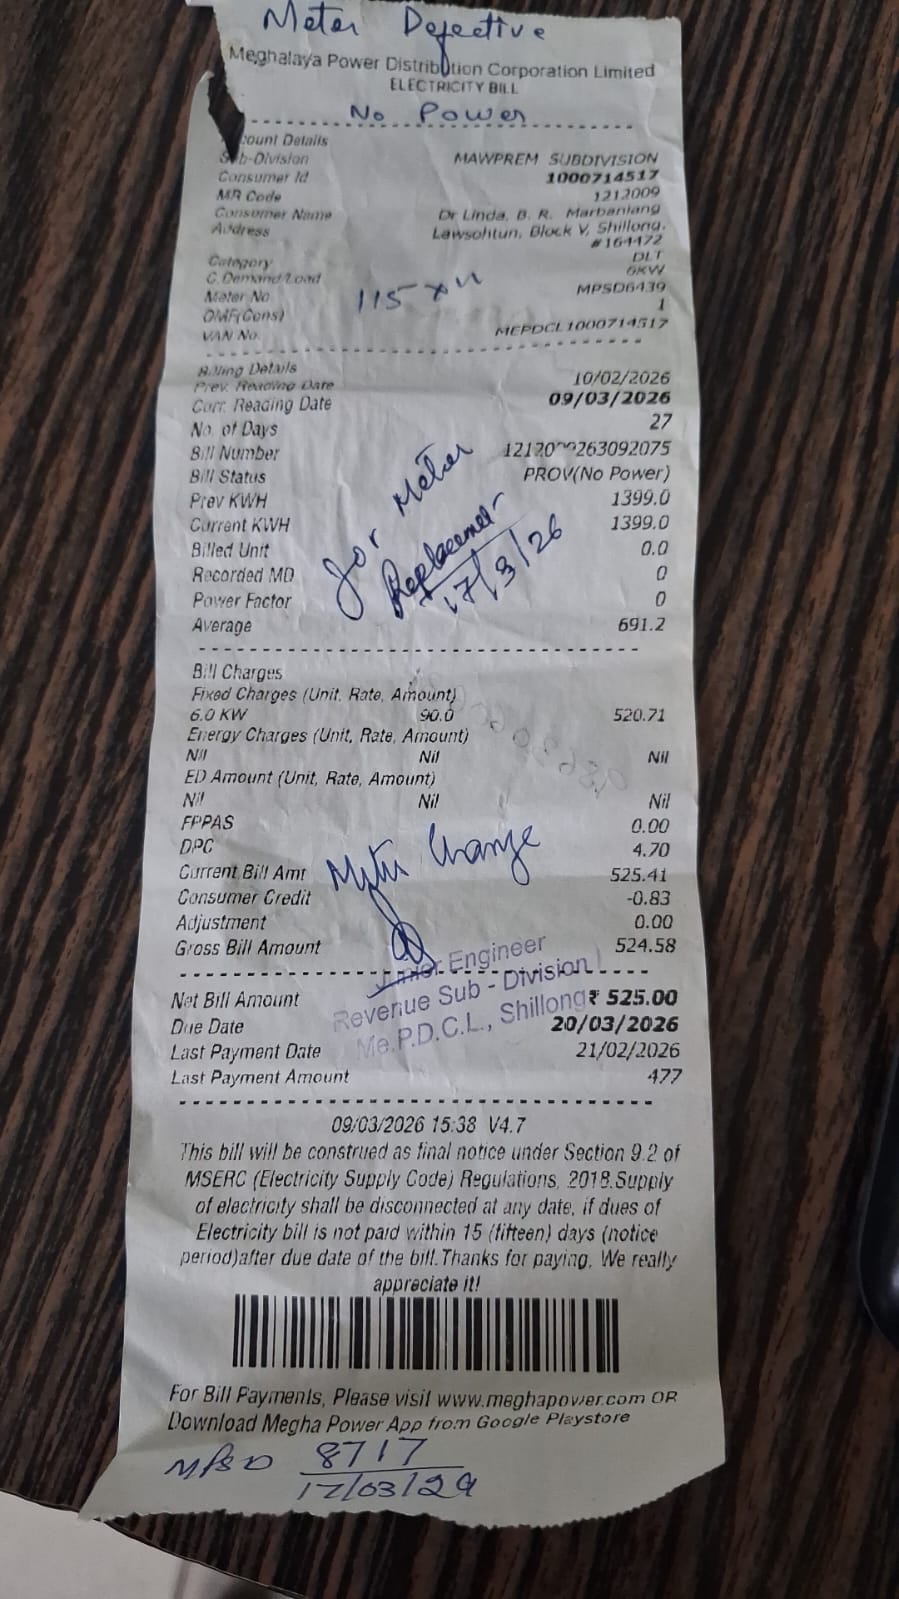 Meter Defective
Meghalaya Power Distribution Corporation Limited
ELECTRICITY BILL
No Power
count Details
Sub-Division MAWPREM SUBDIVISION
Consumer Id 1000714517
MR Code 1212009
Consumer Name Dr Linda. B. R. Marbaniang
Address Lawsohtun, Block V, Shillong.
#164472
Category DLT
C.Demand/Load 6KW
Meter No MPSD6439
115
OMF(Cons) 1
VAN No. MEPDCL1000714517
Billing Details
Prev. Reading Date 10/02/2026
Curr. Reading Date 09/03/2026
No. of Days 27
Bill Number 263092075
Bill Status PROV(No Power)
Prev KWH 1399.0
Current KWH 1399.0
Billed Unit 0.0
Recorded MD 0
Power Factor 0
Average 691.2
for Meter
17/3/26
Bill Charges
Fixed Charges (Unit, Rate, Amount)
6.0 KW 90.0 520.71
Energy Charges (Unit, Rate, Amount)
Nil Nil Nil
ED Amount (Unit, Rate, Amount)
Nil Nil Nil
FPPAS 0.00
DPC 4.70
Current Bill Amt 525.41
Consumer Credit -0.83
Adjustment 0.00
Gross Bill Amount 524.58
Change
Junior Engineer
Revenue Sub - Division
Me.P.D.C.L., Shillong
Net Bill Amount ₹ 525.00
Due Date 20/03/2026
Last Payment Date 21/02/2026
Last Payment Amount 477
09/03/2026 15:38 V4.7
This bill will be construed as final notice under Section 9.2 of
MSERC (Electricity Supply Code) Regulations, 2018.Supply
of electricity shall be disconnected at any date, if dues of
Electricity bill is not paid within 15 (fifteen) days (notice
period)after due date of the bill.Thanks for paying, We really
appreciate it!
For Bill Payments, Please visit www.meghapower.com OR
Download Megha Power App from Google Playstore
MPSD 8717